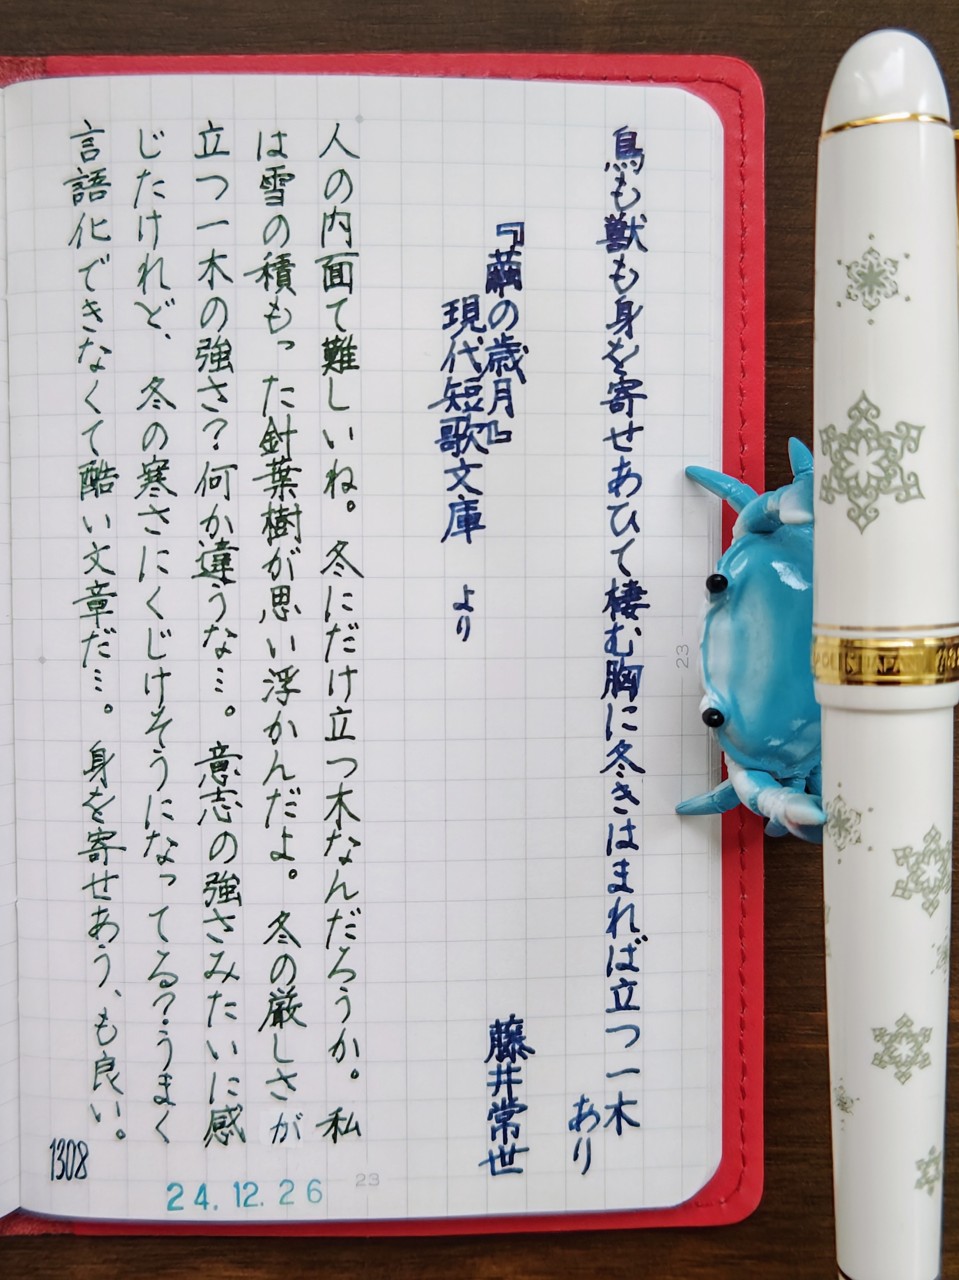 鳥も獣も身を寄せあひて棲む胸に冬きはまれば立つ一木
あり
『繭の歳月』
現代短歌文庫 より
藤井常世
人の内面て難しいね。冬にだけ立つ木なんだろうか。私
は雪の積もった針葉樹が思い浮かんだよ。冬の厳しさが
立つ一木の強さ?何か違うな…。意志の強さみたいに感
じたけれど、冬の寒さにくじけそうになってる?うまく
言語化できなくて酷い文章だ…。身を寄せあう、も良い。
1308
24.12.26
23
23